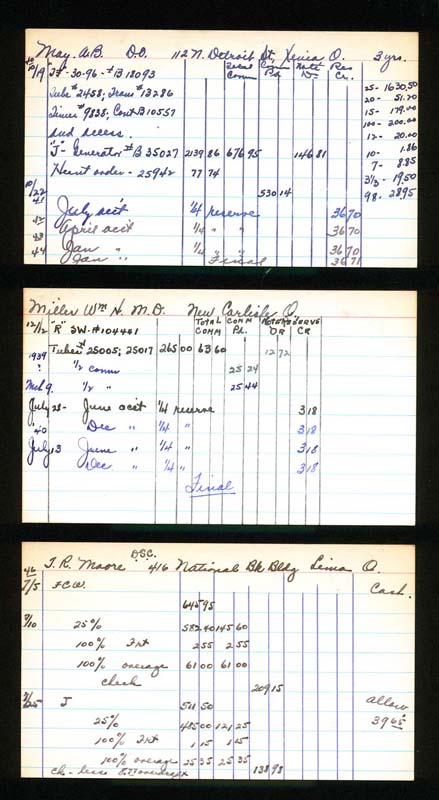 May, A.B. D.O. 112 N. Detroit St, Xenia O. 3 yrs.
Total Comm Comm Pd. Note Dr Res Cr.
40 10/19 30-96-#B18093
Tube #2458; Trans #13286 25- 1630.50
Timer #9838; Cont B10557 20- 51.20
and access. 15- 179.00
100- 200.00
12- 20.00
"J" Generator #B35027 2139 86 676 95 146 81 10- 1.86
order - 25942 77 74 7- 8.85
3 1/3- 19.50
10/22 530 14 98. 2895
41 July acc't 1/4 reserve 36 70
April acc't 1/4 " " 36 70
43 Jan " 1/4 " " 36 70
44 Jan " Final 36 71
Miller Wm H. M.D. New Carlisle O.
TOTAL COMM COMM Pd. NOTE DR RESERVE CR
12/12 "R" SW-#104441
1939 Tubes # 25005; 25017 265 00 63 60 12 72
1/2 comm 25 24
Mch 9. 1/2 " 25 44
July 28- June acct 1/4 reserve 3 18
40 Dec " 1/4 " 3 18
July 13 June " 1/4 " 3 18
Dec " 1/4 " 3 18
Final
J. R. Moore D.S.C. 416 National Bk Bldg Lima O.
46
7/5 FCW. Cash.
645 95
7/10 25% 582 40 145 60
100% Frt 2 55 2 55
100% overage 61 00 61 00
check 209 15
7/25 J 511 50 allow
25% 485 00 121 25 39 65
100% Frt 1 15 1 15
100% overage 25 35 25 35
ck - less overdraft 138 98